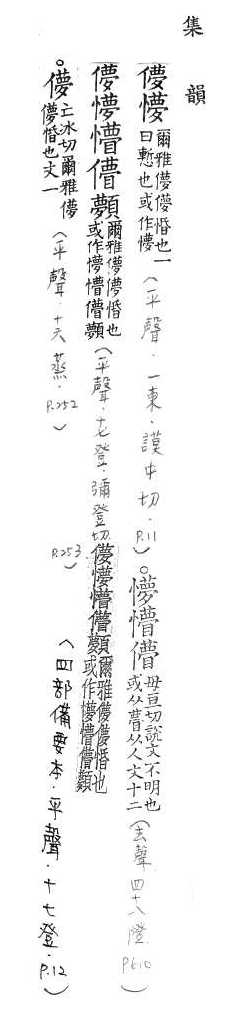 集韻
儚懜爾雅儚儚惛也一曰慙也或作懜（平聲．一東．謨中切．P.11）
○懜懵儯毋亘切說文不明也或从瞢从人文十二（去聲四十八隥P610）
儚懜懵儯顭爾雅儚儚惛也或作懜懵儯顭（平聲．十七登．彌登切．P.253）
儚懜懵儯顭爾雅儚儚惛也或作懜懵儯顭（四部備要本．平聲．十七登．P.12）
○儚亡冰切爾雅儚儚惛也文一（平聲．十六蒸．P.252）